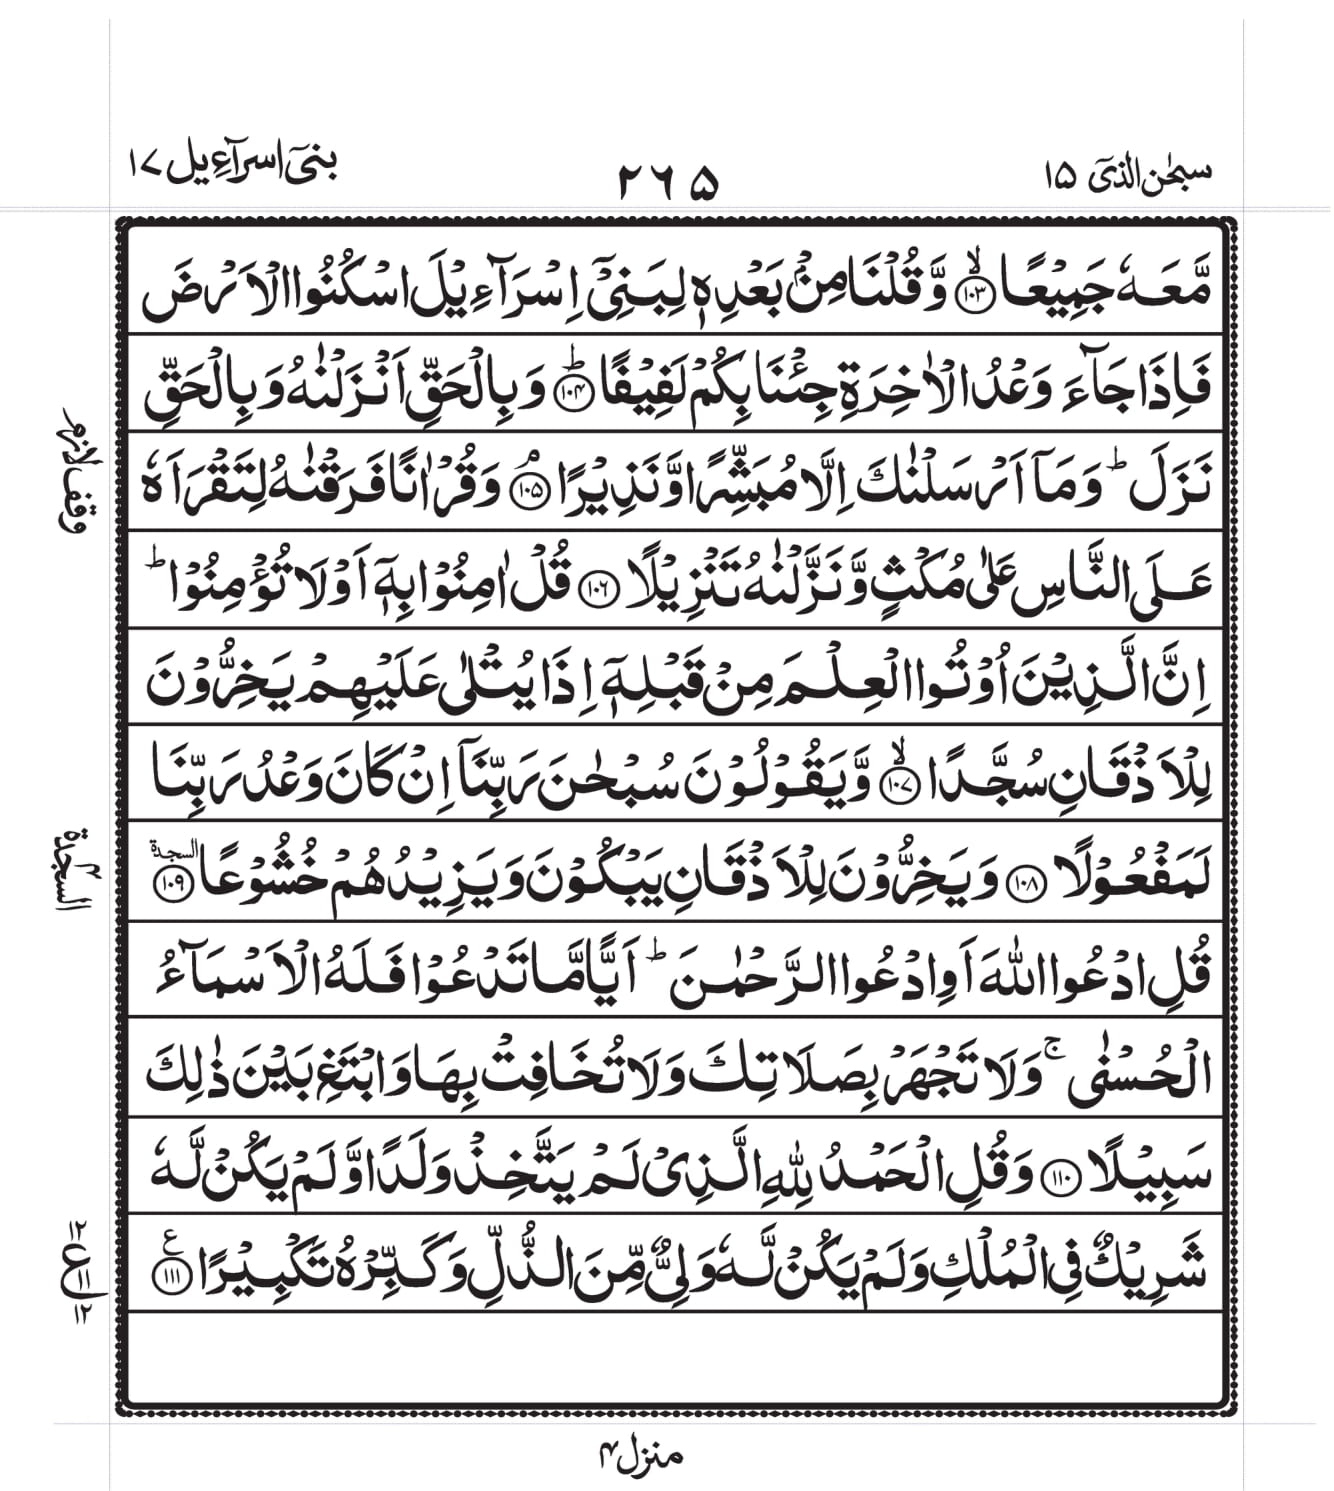 سبحٰن الذیٓ ۱۵
۲۶۵
بنیٓ اسرآءیل ۱۷
مَّعَهٗ جَمِیْعًا ۙ﴿۱۰۳﴾ وَّ قُلْنَا مِنْۢ بَعْدِهٖ لِبَنِیْۤ اِسْرَآءِیْلَ اسْكُنُوا الْاَرْضَ
فَاِذَا جَآءَ وَعْدُ الْاٰخِرَةِ جِئْنَا بِكُمْ لَفِیْفًا ؕ﴿۱۰۴﴾ وَ بِالْحَقِّ اَنْزَلْنٰهُ وَ بِالْحَقِّ
نَزَلَ ؕ وَ مَاۤ اَرْسَلْنٰكَ اِلَّا مُبَشِّرًا وَّ نَذِیْرًا ۘ﴿۱۰۵﴾ وَ قُرْاٰنًا فَرَقْنٰهُ لِتَقْرَاَهٗ
وقف لازم
عَلَی النَّاسِ عَلٰی مُكْثٍ وَّ نَزَّلْنٰهُ تَنْزِیْلًا ﴿۱۰۶﴾ قُلْ اٰمِنُوْا بِهٖۤ اَوْ لَا تُؤْمِنُوْا ؕ
اِنَّ الَّذِیْنَ اُوْتُوا الْعِلْمَ مِنْ قَبْلِهٖۤ اِذَا یُتْلٰی عَلَیْهِمْ یَخِرُّوْنَ
لِلْاَذْقَانِ سُجَّدًا ۙ﴿۱۰۷﴾ وَّ یَقُوْلُوْنَ سُبْحٰنَ رَبِّنَاۤ اِنْ كَانَ وَعْدُ رَبِّنَا
لَمَفْعُوْلًا ﴿۱۰۸﴾ وَ یَخِرُّوْنَ لِلْاَذْقَانِ یَبْكُوْنَ وَ یَزِیْدُهُمْ خُشُوْعًا السجدة ﴿۱۰۹﴾
السجدة ۴
قُلِ ادْعُوا اللّٰهَ اَوِ ادْعُوا الرَّحْمٰنَ ؕ اَیًّا مَّا تَدْعُوْا فَلَهُ الْاَسْمَآءُ
الْحُسْنٰی ۚ وَ لَا تَجْهَرْ بِصَلَاتِكَ وَ لَا تُخَافِتْ بِهَا وَ ابْتَغِ بَیْنَ ذٰلِكَ
سَبِیْلًا ﴿۱۱۰﴾ وَ قُلِ الْحَمْدُ لِلّٰهِ الَّذِیْ لَمْ یَتَّخِذْ وَلَدًا وَّ لَمْ یَكُنْ لَّهٗ
شَرِیْكٌ فِی الْمُلْكِ وَ لَمْ یَكُنْ لَّهٗ وَلِیٌّ مِّنَ الذُّلِّ وَ كَبِّرْهُ تَكْبِیْرًا ع ﴿۱۱۱﴾
۱۲
ع ۱۱
۱۲
منزل ۴